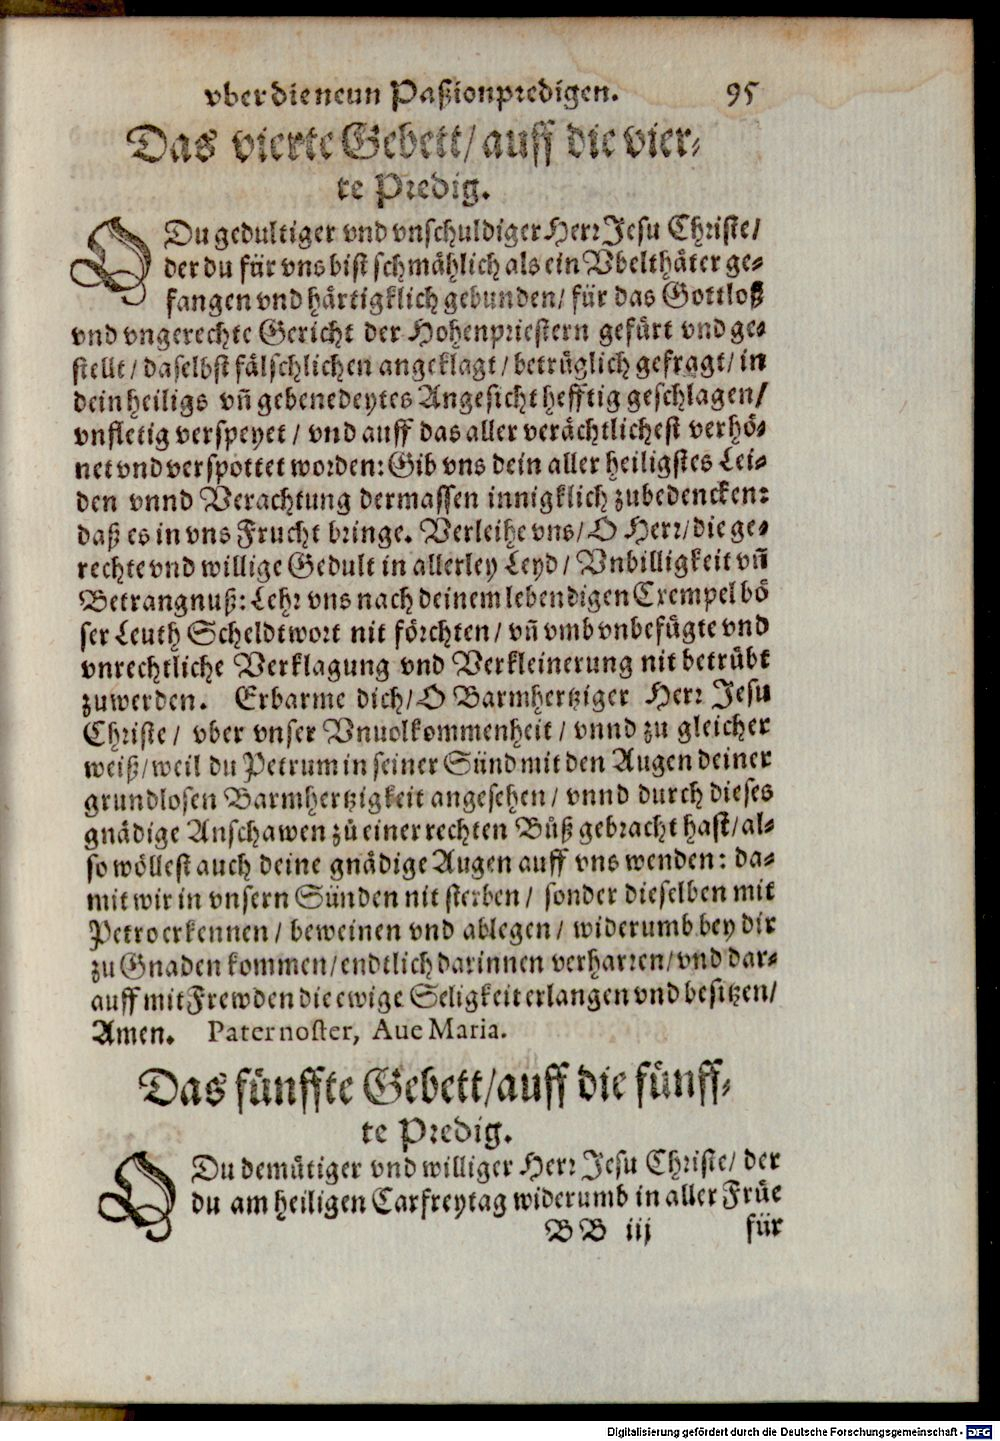 vber die neun Paßionpredigen. 95
Das vierte Gebett/ auff die vier-
te Predig.
O Du gedultiger vnd vnschuldiger Herr Jesu Christe/
der du für vns bist schmählich als ein Vbelthäter ge-
fangen vnd härtigklich gebunden/ für das Gottloß
vnd vngerechte Gericht der Hohenpriestern gefürt vnd ge-
stellt/ daselbst fälschlichen angeklagt/ betrüglich gefragt/ in
dein heiligs vn̄ gebenedeytes Angesicht hefftig geschlagen/
vnfletig verspeyet/ vnd auff das aller verächtlichest verhö-
net vnd verspottet worden: Gib vns dein aller heiligstes Lei-
den vnnd Verachtung dermassen innigklich zubedencken:
daß es in vns Frucht bringe. Verleihe vns/ O Herr/ die ge-
rechte vnd willige Gedult in allerley Leyd/ Vnbilligkeit vn̄
Betrangnuß: Lehr vns nach deinem lebendigen Exempel bö
ser Leuth Scheldtwort nit förchten/ vn̄ vmb vnbefügte vnd
vnrechtliche Verklagung vnd Verkleinerung nit betrübt
zuwerden. Erbarme dich/ O Barmhertziger Herr Jesu
Christe/ vber vnser Vnuolkommenheit/ vnnd zu gleicher
weiß/ weil du Petrum in seiner Sünd mit den Augen deiner
grundlosen Barmhertzigkeit angesehen/ vnnd durch dieses
gnädige Anschawen zů einer rechten Bůß gebracht hast/ al-
so wöllest auch deine gnädige Augen auff vns wenden: da-
mit wir in vnsern Sünden nit sterben/ sonder dieselben mit
Petro erkennen/ beweinen vnd ablegen/ widerumb bey dir
zu Gnaden kommen/ endtlich darinnen verharren/ vnd dar-
auff mit Frewden die ewige Seligkeit erlangen vnd besitzen/
Amen. Paternoster, Aue Maria.
Das fünffte Gebett/ auff die fünff-
te Predig.
O Du demütiger vnd williger Herr Jesu Christe/ der
du am heiligen Carfreytag widerumb in aller Früe
BB iij für
Digitalisierung gefördert durch die Deutsche Forschungsgemeinschaft - DFG